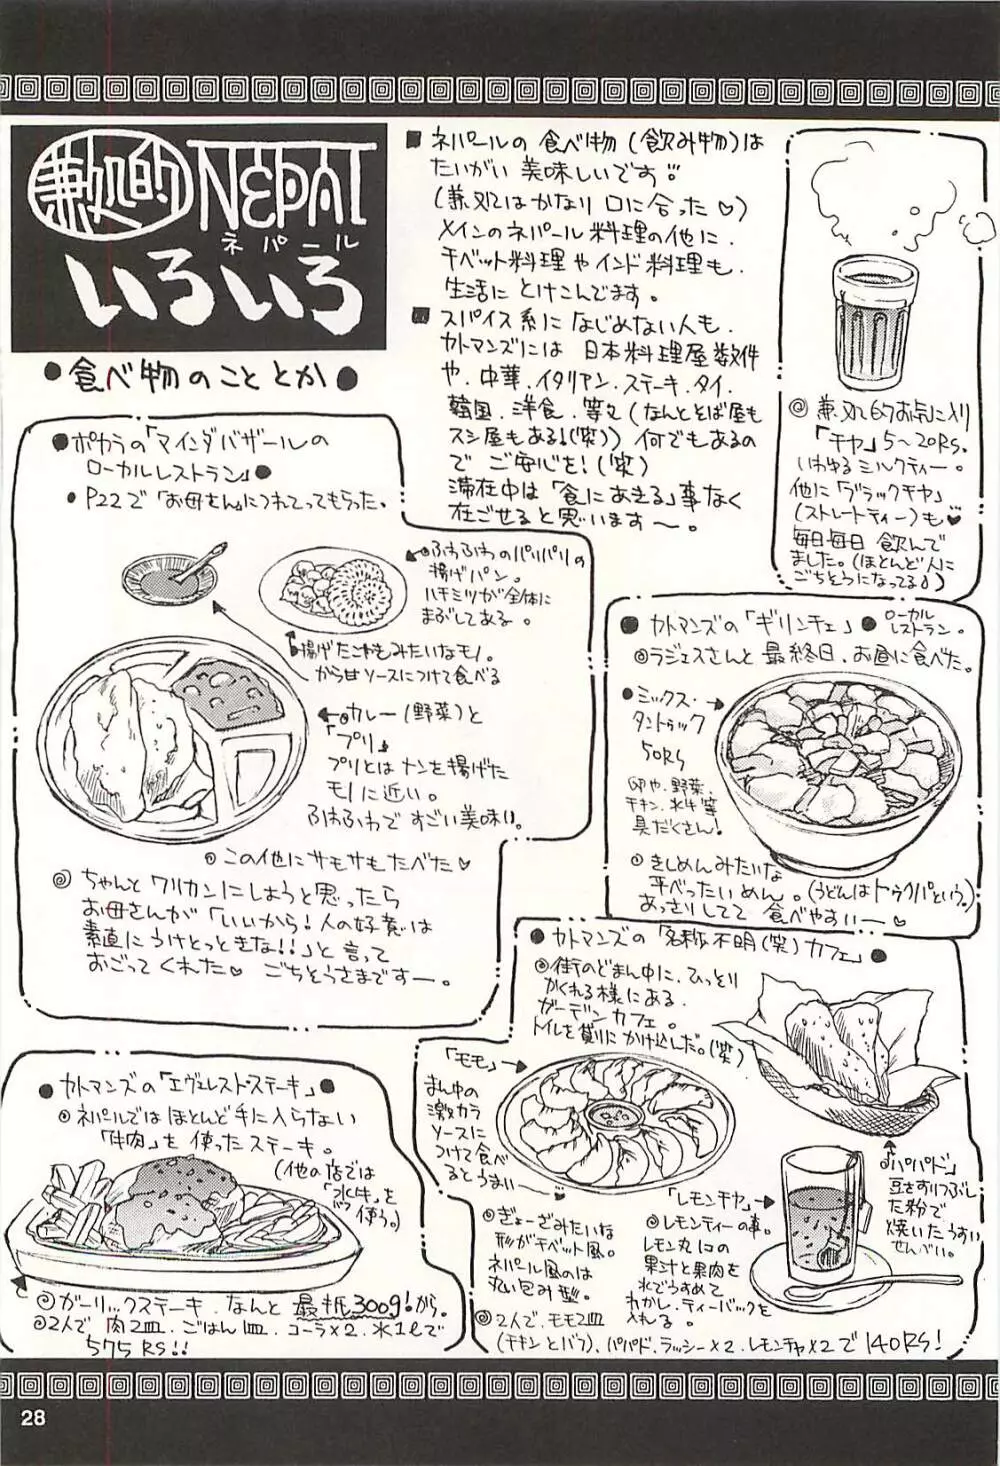 兼処的 NEPAL
ネパール
いろいろ
●食べ物のこととか●
■ネパールの食べ物(飲み物)は
たいがい美味しいです
(兼処はかなり口に合った♡)
メインのネパール料理の他に、
チベット料理やインド料理も、
生活にとけこんでます。
■スパイス系になじめない人も、
カトマンズには日本料理屋数件
や、中華、イタリアン、ステーキ、タイ、
韓国、洋食、等々(なんとそば屋も
スシ屋もある!(笑))何でもあるの
でご安心を!(笑)
滞在中は「食にあきる」事なく
在ごせると思います〜。
◎兼処的お気に入り
「チヤ」5〜20RS.
いわゆるミルクティー。
他に「ブラックチヤ」
(ストレートティー)も♥
毎日毎日飲んで
ました。(ほとんど人に
ごちそうになってる)
●ポカラの「マインダバザールの
ローカルレストラン」●
●P22で「お母さん」につれてってもらった。
ふわふわのパリパリの
揚げパン。
ハチミツが全体に
まぶしてある。
揚げたこれもみたいなモノ。
から甘ソースにつけて食べる
カレー(野菜)と
「プリ」
プリとはナンを揚げた
モノに近い。
ふわふわですごい美味い。
この他にサモサもたべた♥
◎ちゃんとワリカンにしようと思ったら
お母さんが「いいから!人の好意は
素直にうけとっときな!!」と言って
おごってくれた♥ ごちそうさまです〜。
●カトマンズの「ギリンチェ」● ローカル
レストラン。
◎ラジェスさんと最終日、お昼に食べた。
●ミックス・
タントゥック
50RS
卵や、野菜、
チキン、水牛等
具だくさん!
きしめんみたいな
平べったいめん。(うどんはトゥクパという。)
あっさりしてて食べやすい〜♡
●カトマンズの「名称不明(笑)カフェ」●
◎街のどまん中に、ひっそり
かくれる様にある
ガーデンカフェ。
トイレを貸りにかけ込んだ。(笑)
「モモ」
まん中の
激カラ
ソースに
つけて食べ
るとうまい〜
◎ぎょーざみたいな
形がチベット風。
ネパール風のは
丸い包み型。
「パパド」
豆をすりつぶし
た粉で
焼いたうすい
せんべい。
「レモンチヤ」
◎レモンティーの事。
レモン丸1コの
果汁と果肉を
水でうすめて
わかし、ティーバックを
入れる。
◎2人で、モモ2皿
(チキンとバフ)、パパド、ラッシー×2、レモンチヤ×2で140RS!
●カトマンズの「エヴェレスト・ステーキ」●
◎ネパールではほとんど手に入らない
「牛肉」を使ったステーキ。
(他の店では
「水牛」を
使う。)
◎ガーリックステーキ、なんと最低300g!から。
◎2人で肉2皿、ごはん1皿、コーラ×2、水1ℓで
575RS!!
28